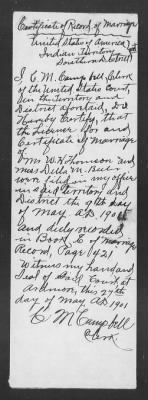 Certificate of Record of Marriage
United States of America
Indian Territory
Southern District
I C. M. Campbell Clerk
of the United States Court,
in the Territory and
District aforesaid, do
Hereby Certify, that
the License for and
Certificate of Marriage
of
Mr W. H. Johnson and
Miss Della M.
were filed in my office
in said Territory and
District the 9th day
of May AD 1901
and duly recorded
in Book E of marriage
Record, Page 421
Witness my hand and
Seal of said Court at
Ardmore, this 27th
day of May AD 1901
C M Campbell
Clerk